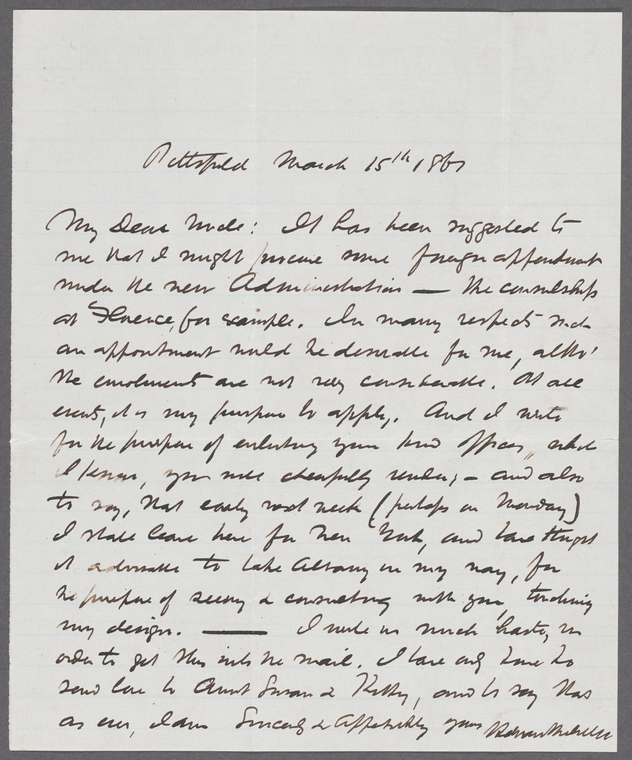 Pittsfield March 15th 1861
My Dear Uncle: It has been suggested to
me that I might procure some foreign appointment
under the new Administration — the consulship
at Florence, for example. In many respects such
an appointment would be desirable for me, altho'
the emoluments are not very considerable. At all
events, it is my purpose to apply. And I write
for the purpose of enlisting your kind offices, which
I know, you will cheerfully render; — and also
to say, that early next week (perhaps on Monday)
I shall leave here for New York, and have thought
it advisable to take Albany on my way, for
the purpose of seeing & consulting with you, touching
my design. — I write in much haste, in
order to get this into the mail. I have only time to
send love to Aunt Susan & Kitty, and to say that
as ever, I am Sincerely & Affectionately yours H Melville